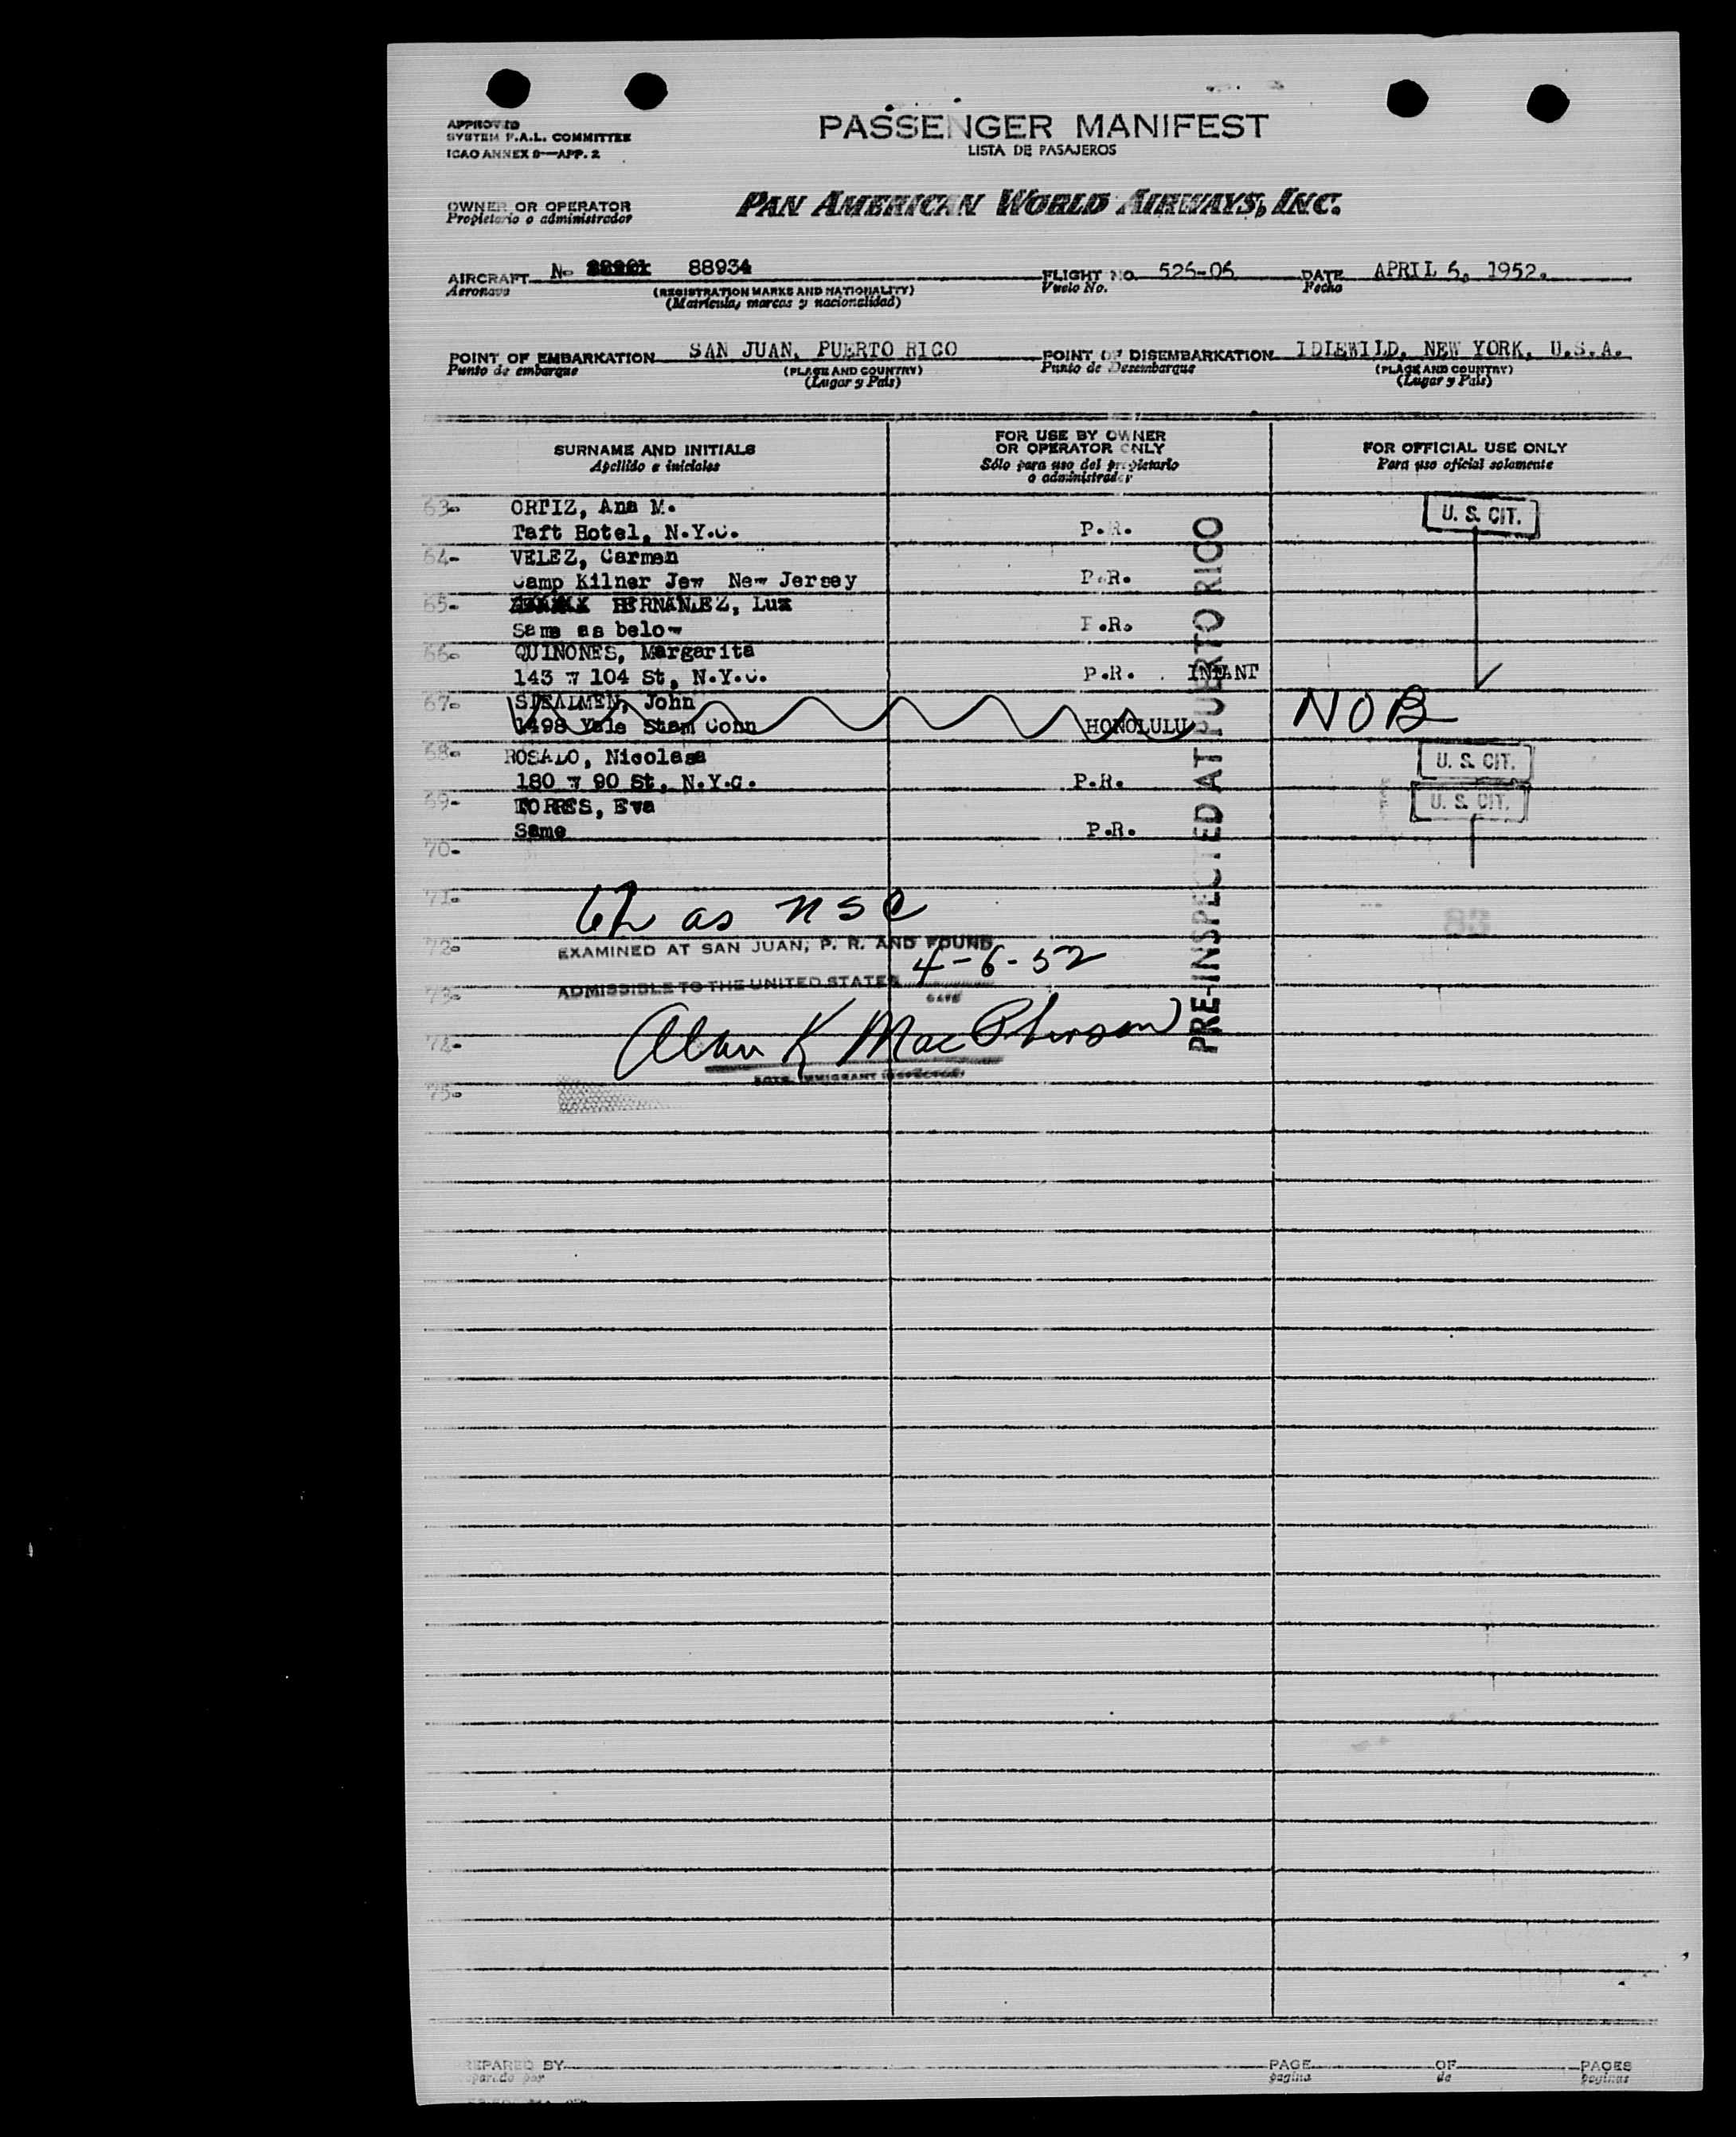 APPROVED
SYSTEM F.A.L. COMMITTEE
ICAO ANNEX 9—APP. 2
PASSENGER MANIFEST
LISTA DE PASAJEROS
OWNER OR OPERATOR
Propietario o administrador
PAN AMERICAN WORLD AIRWAYS, INC.
AIRCRAFT N- 88934
Aeronave
(REGISTRATION MARKS AND NATIONALITY)
(Matrícula, marcas y nacionalidad)
FLIGHT NO. 526-06
Vuelo No.
DATE APRIL 6, 1952.
Fecha
POINT OF EMBARKATION SAN JUAN, PUERTO RICO
Punto de embarque
(PLACE AND COUNTRY)
(Lugar y País)
POINT OF DISEMBARKATION IDLEWILD, NEW YORK, U.S.A.
Punto de Desembarque
(PLACE AND COUNTRY)
(Lugar y País)
SURNAME AND INITIALS
Apellido e iniciales
FOR USE BY OWNER
OR OPERATOR ONLY
Sólo para uso del propietario
o administrador
FOR OFFICIAL USE ONLY
Para uso oficial solamente
63- ORTIZ, Ana M.
Taft Hotel, N.Y.C. P.R.
U. S. CIT.
64- VELEZ, Carmen
Camp Kilner Jew New Jersey P.R.
65- HERNANDEZ, Luz
Same as below P.R.
66- QUINONES, Margarita
143 W 104 St, N.Y.C. P.R. INFANT
67- John
1498 Yale Stam Conn HONOLULU
NOB
68- ROSADO, Nicolasa
180 W 90 St, N.Y.C. P.R.
U. S. CIT.
69- TORRES, Eva
Same P.R.
U. S. CIT.
70-
71-
62 as NSC
72-
EXAMINED AT SAN JUAN, P. R. AND FOUND
4-6-52
73-
ADMISSIBLE TO THE UNITED STATES
DATE
74-
Alan K MacPherson
IMMIGRANT INSPECTOR
75-
PRE-INSPECTED AT PUERTO RICO
83
PREPARED BY
Preparado por
PAGE OF PAGES
página de páginas